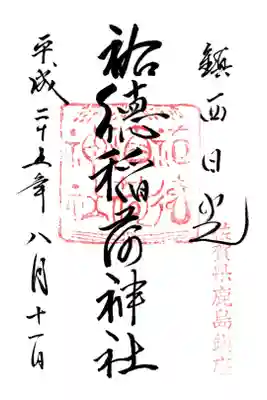 鎮西日光
佐賀県鹿島鎮座
祐徳稲荷神社
平成二十五年八月十一日